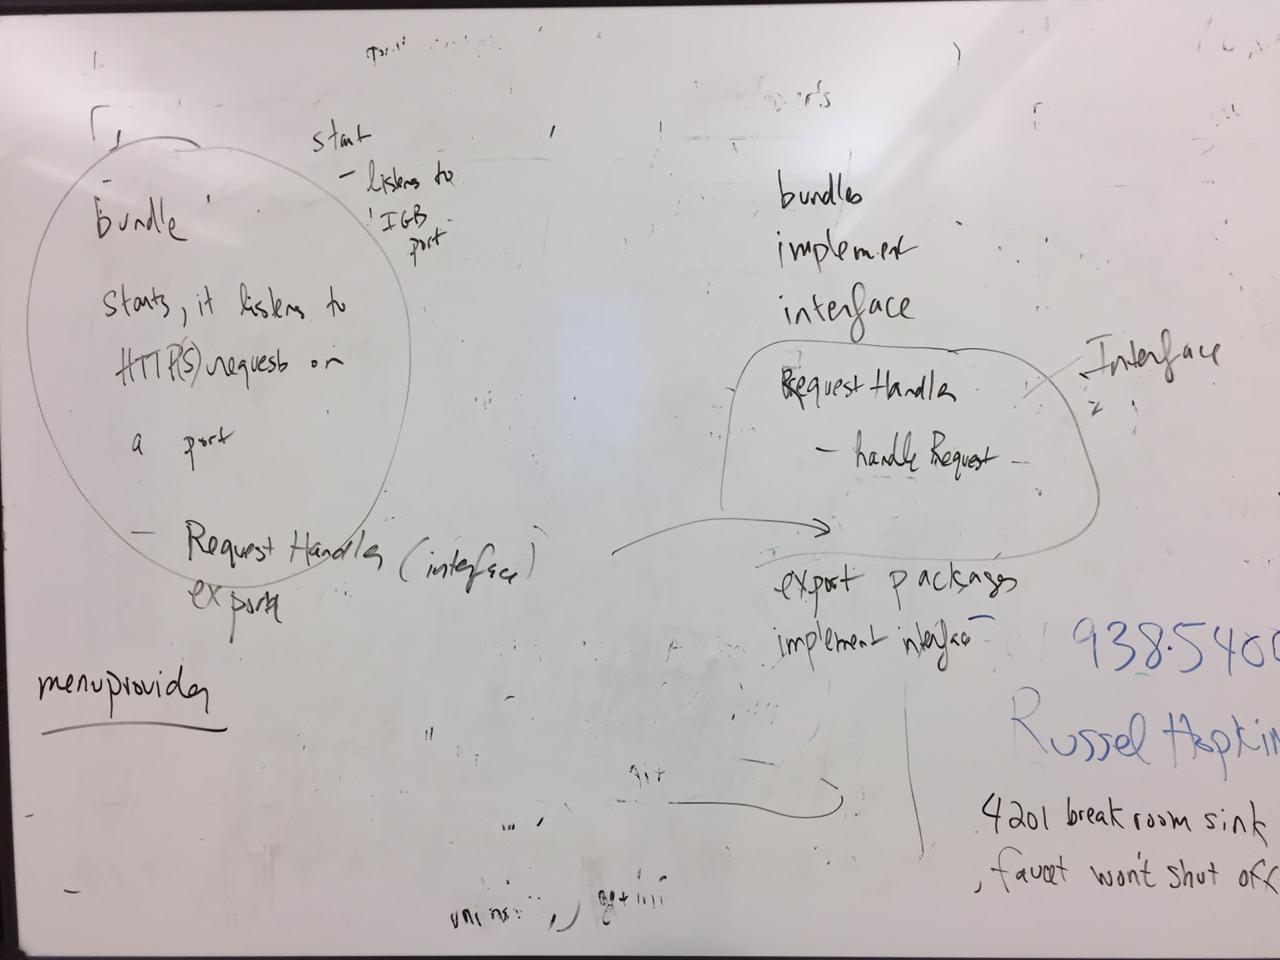 start
- listens to
IGB
port
bundle
starts, it listens to
HTTP(S) requests on
a port
- Request Handler (interface)
exports
menuprovider
bundles
implement
interface
Request Handler
- handle Request -
Interface
export packages
implement interface
938.5400
Russel Hopkin
4201 break room sink
, faucet won't shut off
git